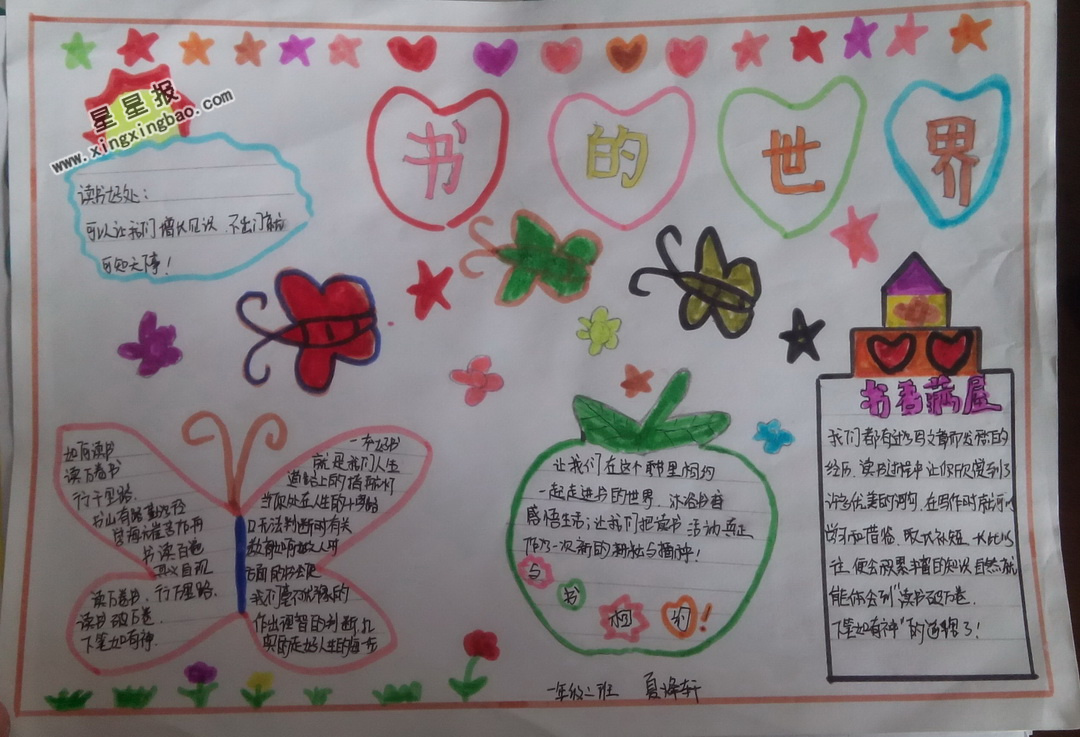 星星报
www.xingxingbao.com
书的世界
读书好处：
可以让我们增长见识，不出门就
可知天下事！
如何读书
读万卷书
行千里路.
书山有路勤为径
学海无崖苦作舟
书读百遍
其义自现
读万卷书，行万里路.
读书破万卷
下笔如有神.
一本好书
就是我们人生
道路上的指标灯
当你处在人生的十字路
口无法判断时有关
方面的书会使
我们毫不犹豫的
作出理智的判断，从
实的走好人生的每一步
让我们在这个平台里相约
一起走进书的世界，沐浴书香
感悟生活；让我们把读书活动真正
作为一次新的耕耘与播种！
与
书
相
约！
书香满屋
我们都有过写文章而发愁的
经历，读书过程中让你欣赏到了
许多优美的词句，在写作时就可以
学习和借鉴，取长补短，长此以
往，便会积累丰富的知识自然就
能体会到“读书破万卷，
下笔如有神”的道理了！
一年级二班 夏泽轩